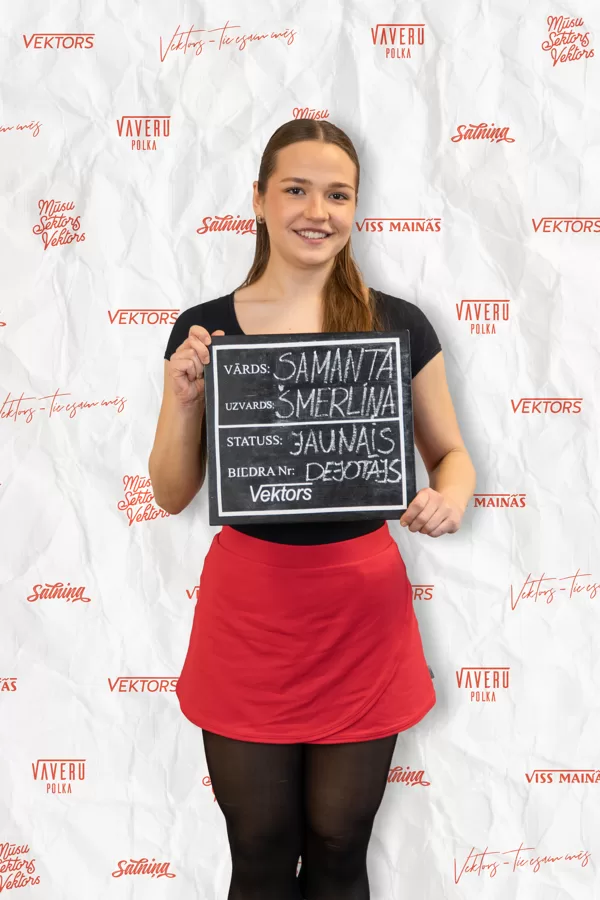 VEKTORS
Vektors – Tie esam mēs
VAVERU
POLKA
Mūsu
Sektors
Vektors
esam mēs
VAVERU
POLKA
Mūsu
Satniņa
Mūsu
Sektors
Vektors
Satniņa
VISS MAINĀS
VEKTORS
VEKTORS
VAVERU
POLKA
VĀRDS: SAMANTA
UZVARDS: ŠMERLIŅA
STATUSS: JAUNAIS
BIEDRA Nr: DEJOTĀJS
Vektors
Vektors – Tie esam mēs
VEKTORS
Mūsu
Sektors
Vektors
MAINĀS
Satniņa
RS
Vektors – Tie esam
ĀS
VEKTORS
VAVERU
POLKA
VAVERU
POLKA
tniņa
VISS MAINĀ
Mūsu
Sektors
Vektors
Satniņa
Vektors – Tie esam mēs